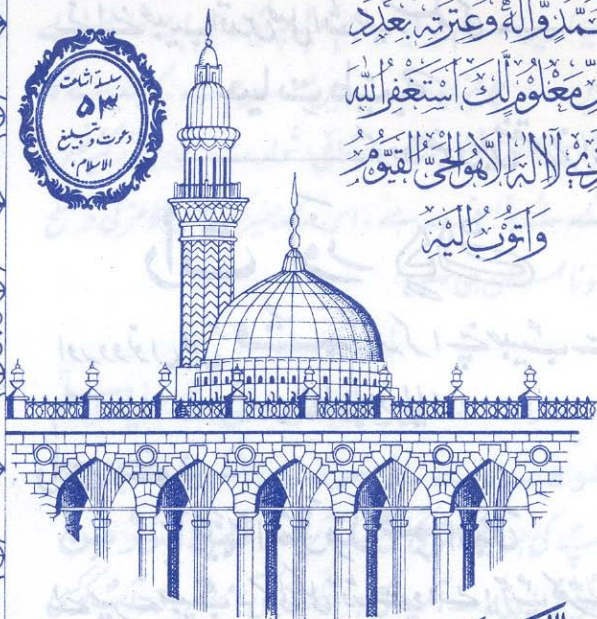 سلسلہ اشاعت
۵۳
دعوت و تبلیغ
الاسلام،
وَّاٰلِهٖ وَعِتْرَتِهٖ بِعَدَدِ
مَعْلُوْمٍ لَّكَ اَسْتَغْفِرُ اللّٰهَ
لَآ اِلٰهَ اِلَّا هُوَ الْحَیُّ الْقَیُّوْمُ
وَاَتُوْبُ اِلَیْهِ